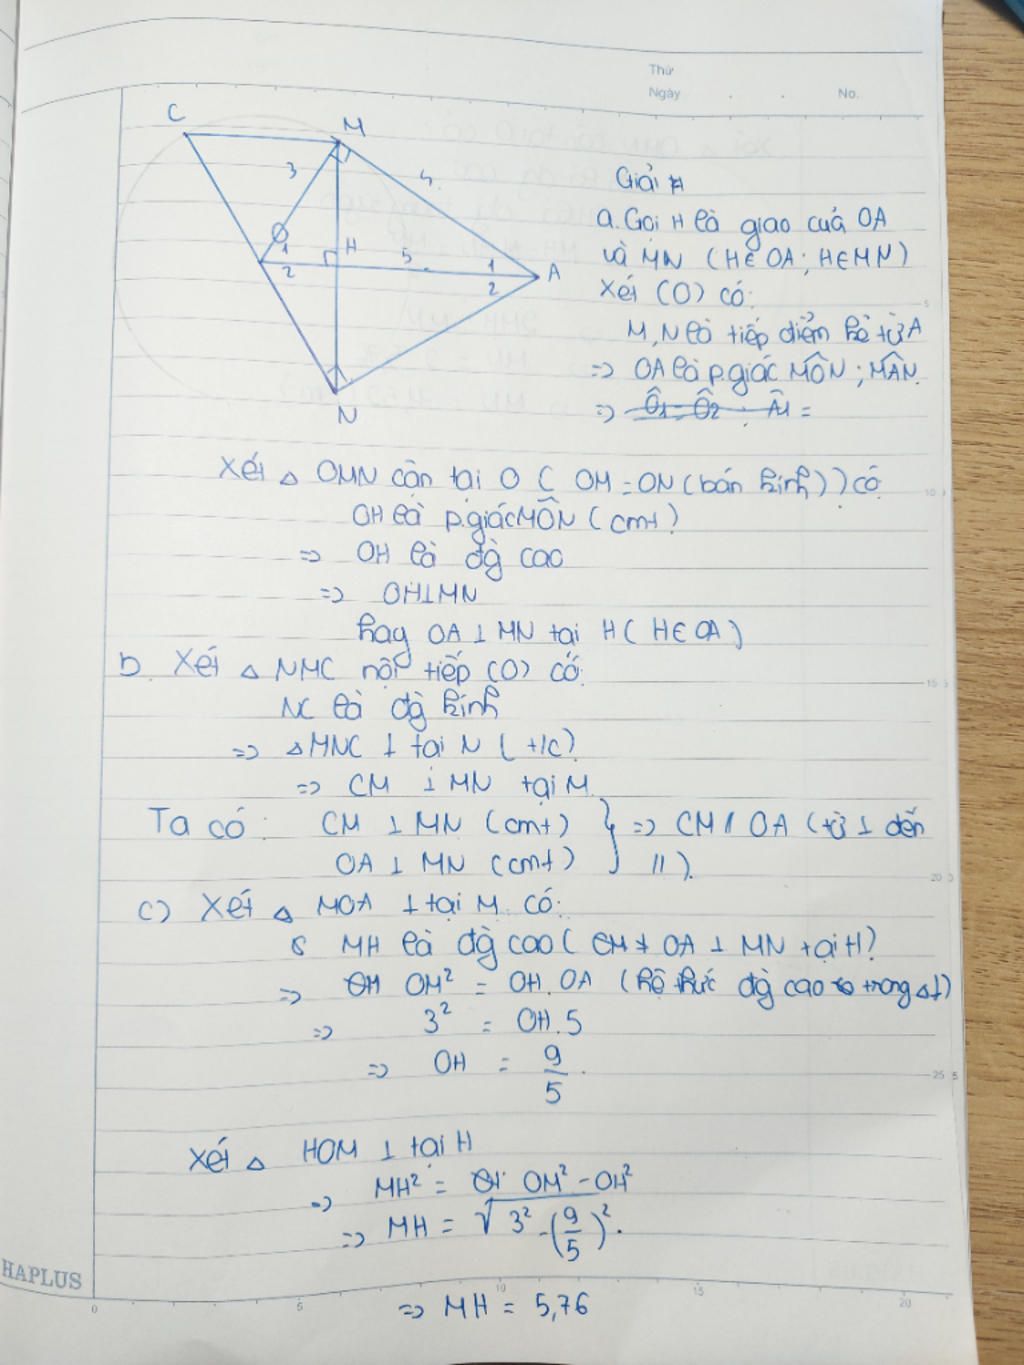 Thứ
Ngày . . No.
C
M
3
4
O
1
2
H
5
1
2
A
N
Giải
a. Gọi H là giao của OA
và MN (H∈OA; H∈MN)
Xét (O) có:
M, N là tiếp điểm kẻ từ A
=> OA là p.giác MÔN; MÂN.
=> Ô1 = Ô2 . Â1 =
Xét △ OMN cân tại O ( OM = ON (bán kính)) có
OH là p.giác MÔN (cmt)
=> OH là đg cao
=> OH⊥MN
hay OA ⊥ MN tại H (H∈OA)
b. Xét △ NMC nội tiếp (O) có:
NC là đg kính
=> △MNC ⊥ tại N (t/c)
=> CM ⊥ MN tại M.
Ta có: CM ⊥ MN (cmt) } => CM // OA (từ ⊥ đến
OA ⊥ MN (cmt) //).
c) Xét △ MOA ⊥ tại M có:
MH là đg cao ( OA ⊥ MN tại H)
=> OM² = OH.OA (hệ thức đg cao trong △⊥)
=> 3² = OH.5
=> OH = 9/5.
Xét △ HOM ⊥ tại H
=> MH² = OM² - OH²
=> MH = √3² - (9/5)².
=> MH = 5,76
HAPLUS
5
10
15
20
25 5
0 5 10 15 20